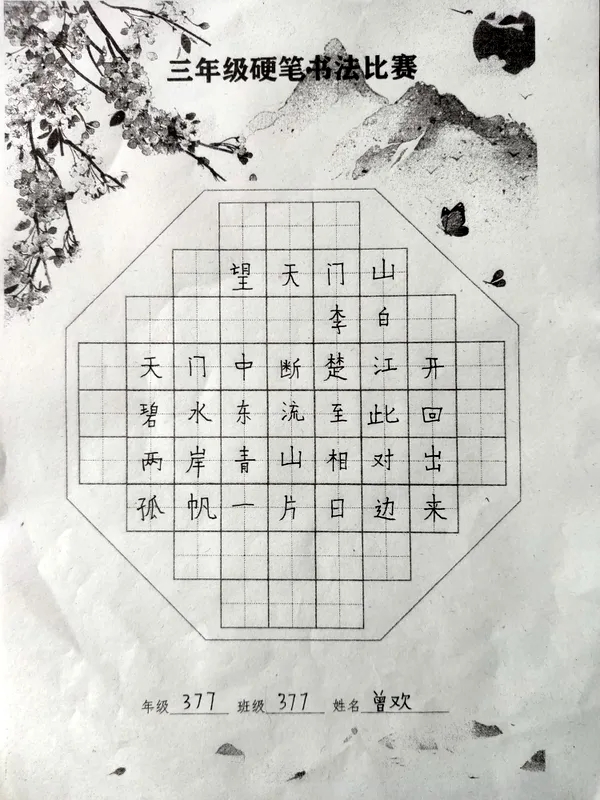 三年级硬笔书法比赛
望天门山
李白
天门中断楚江开
碧水东流至此回
两岸青山相对出
孤帆一片日边来
年级 377 班级 377 姓名 曾欢